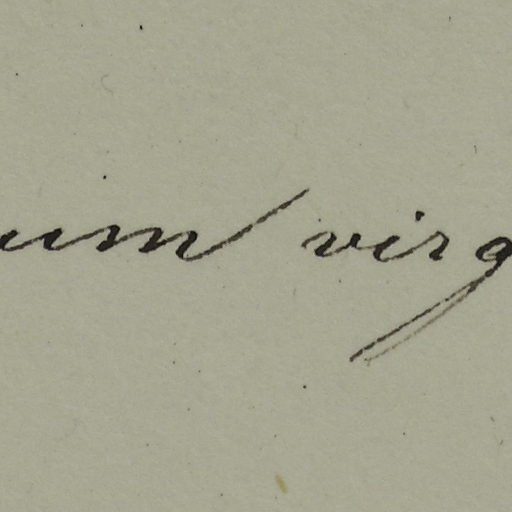 um virg